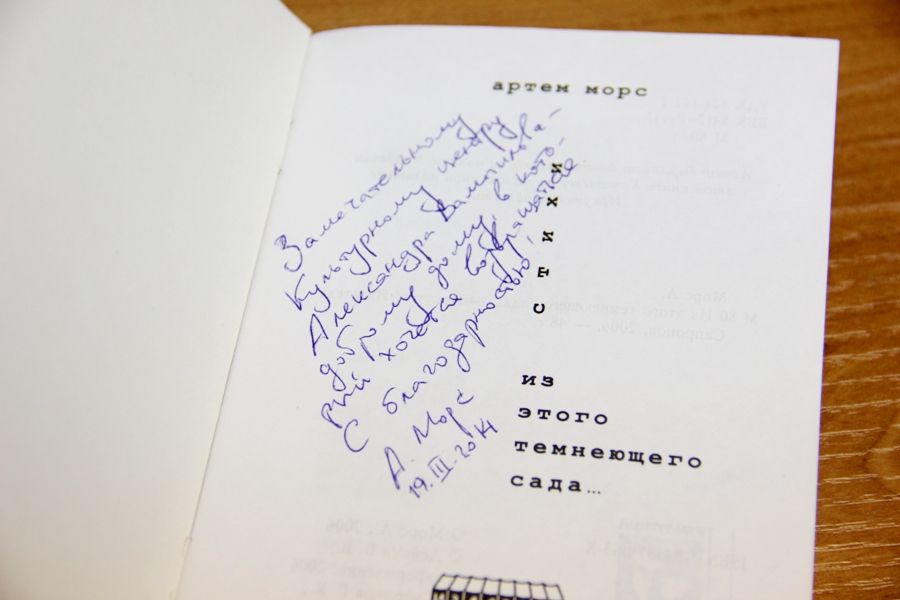 артем морс
Замечательному
Культурному центру
Александра Вампилова –
доброму дому, в кото-
рый хочется возвращаться
С благодарностью,
А. Морс
19.III.2014
стихи
из
этого
темнеющего
сада…